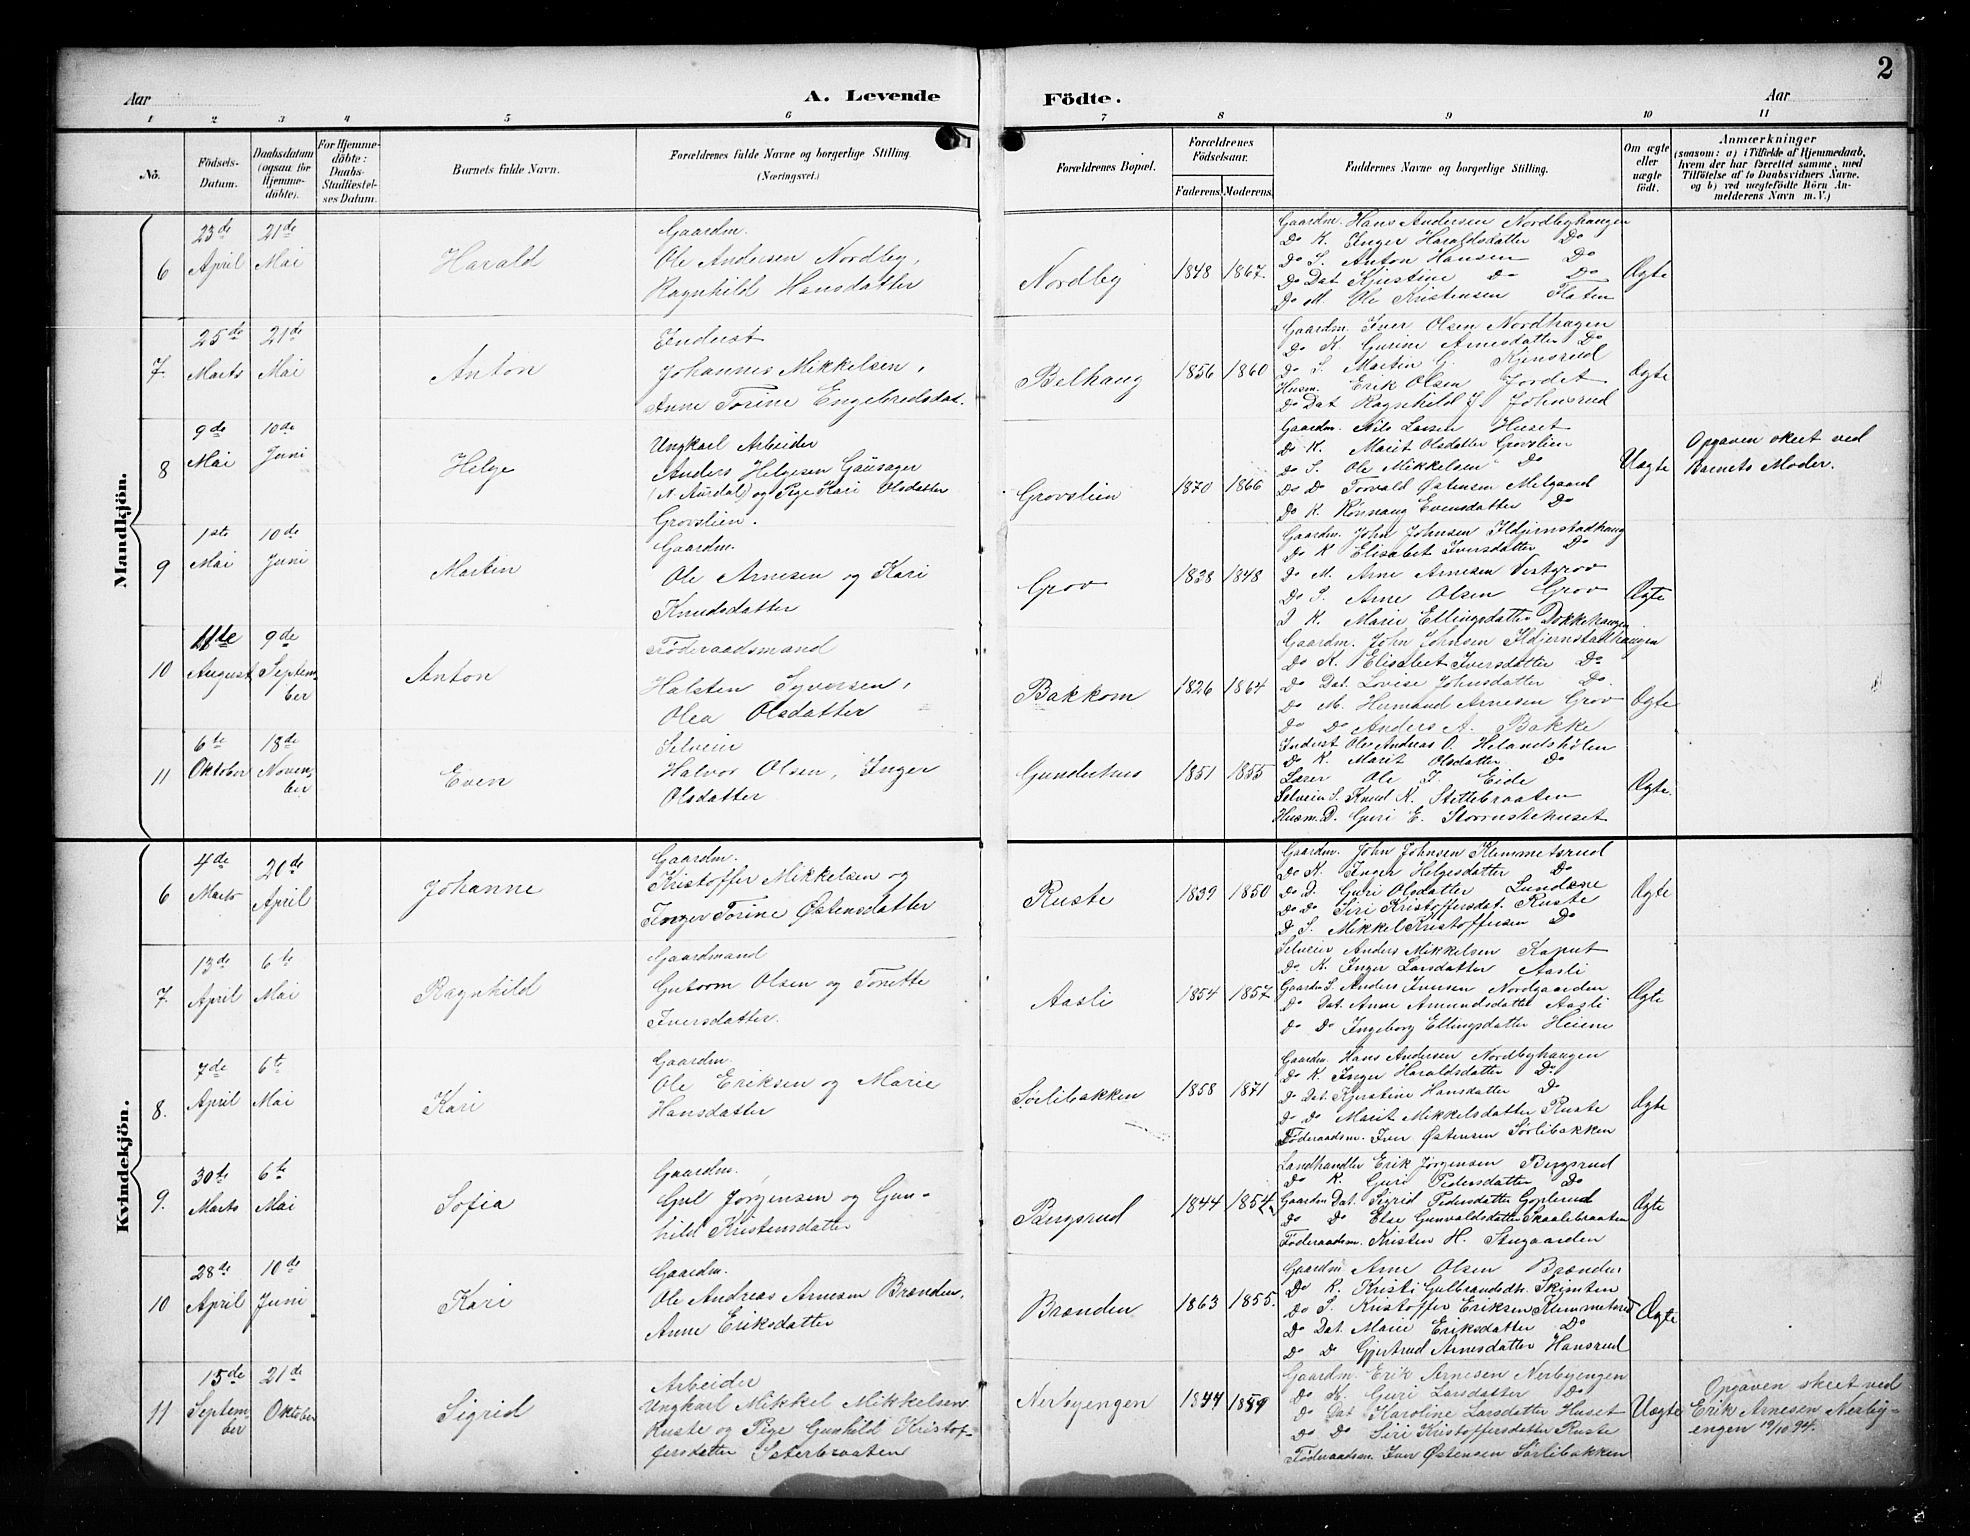 2
Aar
A. Levende
Födte.
Aar
1 2 3 4 5 6 7 8 9 10 11
No.
Födsels-
Datum.
Daabsdatum
(ogsaa for
Hjemme-
döbte).
For Hjemme-
döbte:
Daabs-
Stadfæstel-
ses Datum.
Barnets fulde Navn.
Forældrenes fulde Navne og borgerlige Stilling
(Næringsvei.)
Forældrenes Bopæl.
Forældrenes
Födselsaar.
Faderens. Moderens.
Faddernes Navne og borgerlige Stilling.
Om ægte
eller
uægte
födt.
Anmærkninger
(saasom: a) i Tilfælde af Hjemmedaab,
hvem der har forrettet samme, med
Tilföielse af to Daabsvidners Navne,
og b) ved uægtefödte Börn An-
melderens Navn m.V.)
Mandkjön.
6
23de
April
21de
Mai
Harald
Gaardm.
Ole Andersen Nordby,
Ragnhild Hansdatter
Nordby
1848 1867.
Gaardm. Hans Andersen Nordbyhaugen
Do K. Inger Haraldsdatter Do
Do S. Anton Hansen Do
Do Dat Kjistine Do Do
Do M. Ole Kristensen Flaten
Ægte
7.
25de
Marts
21de
Mai
Anton
Inderst
Johannes Mikkelsen,
Anne Torine Engebredsdat.
Belhaug
1856 1860
Gaardm. Iver Olsen Nordhagen
Do K. Gurine Arnesdatter Do
Do S. Martin G. Kjensrud
Husm. Erik Olsen Jordet
Do Dat Ragnhild J. Johnsrud
Ægte
8
9de
Mai
10de
Juni
Helge
Ungkarl Arbeider
Anders Helgesen Gausager
(N. Aurdal) og Pige Kari Olsdatter
Grovslien.
Grovslien
1870 1866
Gaardm. Nils Larsen Huset
Do K. Marit Olsdatter Grovslien
Do S. Ole Mikkelsen Do
Do D. Torvald Østensen Melgaard
Do K. Rønnaug Evensdatter Do
Uægte
Opgaven skeet ved
Barnets Moder.
9
1ste
Mai
10de
Juni
Martin
Gaardm.
Ole Arnesen og Kari
Knudsdatter
Grov
1838 1848
Gaardm. John Johnsen Hdjernstadhaug
Do K Elisabet Iversdatter Do
Do M. Arne Arnesen Vestgrov
Do S. Arne Olsen Grov
D K. Marie Ellingsdatter Dokkehaugen
Ægte
10
11de
August
9de
Septem-
ber
Anton
Føderaadsmand
Halsten Syversen,
Olea Olsdatter
Bakkom
1826 1864
Gaardm. John Johnsen Hdjernstadhaugen
Do K. Elisabet Iversdatter Do
Do Dat. Lovise Johnsdatter Do.
Do M. Hermand Arnesen Grov
Do Do Anders A. Bakke
Ægte
11
6te
Oktober
18de
Novem-
ber
Even
Selveier
Halvor Olsen, Inger
Olsdatter
Gunderhus
1851 1855
Inderst Ole Andreas O. Helandshølen
Do K. Marit Olsdatter Do
Lærer Ole I. Eide
Selveier S. Knud K. Stillebraaten
Husm. D. Guri E. Storrustehuset
Ægte.
Kvindekjön.
6
4de
Marts
20de
April
Johanne
Gaardm.
Kristoffer Mikkelsen og
Inger Torine Østensdatter
Ruste
1839 1850
Gaardm. John Johnsen Klemmetsrud
Do K. Inger Helgesdatter Do
Do D. Guri Olsdatter Lundene
Do Do Siri Kristoffersdat. Ruste
D S. Mikkel Kristoffersen Do
Ægte
7.
13de
April
6te
Mai
Ragnhild
Gaardmand
Gutorm Olsen og Tonette
Iversdatter.
Aasli
1854 1857.
Selveier Anders Mikkelsen Kaput
Do K. Inger Larsdatter Aasli
Gaardm S. Anders Iversen Nordgaarden
Do Dat. Anne Amundsdatter Aasli
Do Do Ingeborg Ellingsdatter Heiene
Ægte
8.
7de
April
6te
Mai
Kari
Gaardm.
Ole Eriksen og Marie
Hansdatter
Sørlibakken
1858 1871
Gaardm. Hans Andersen Nordbyhaugen
Do K. Inger Haraldsdatter Do
Do Dat. Kjerstine Hansdatter Do
Do Do Marit Mikkelsdatter Ruste
Føderaadsm. Iver Østensen Sørlibakken
Ægte
9.
30te
Marts
6te
Mai
Sofia
Gaardm.
Gul Jørgensen og Gun-
hild Kristensdatter
Bergsrud
1844 1854.
Landhandler Erik Jørgensen Bergsrud
Do K. Guri Pedersdatter Do
Gaardm Dat. Sigrid Pedersdatter Goplerud
Do Do Else Gunvaldsdatter Skaalebraaten
Føderaadsm. Kristen H. Stugaarden
Ægte
10
28de
April
10de
Juni
Kari
Gaardm.
Ole Andreas Arnesen Brænden,
Anne Eriksdatter
Brænden
1863 1855.
Gaardm. Arne Olsen Brænden
Do K. Kristi Gulbrandsdtr. Skjenten
Do S. Kristoffer Eriksen Klemmetsrud
Do Dat. Marie Eriksdatter Do
Do D Gjertrud Arnesdatter Hansrud
Ægte
11
15de
Septem-
ber
21de
Oktober
Sigrid
Arbeider
Ungkarl Mikkel Mikkelsen
Ruste og Pige Gunhild Kristof-
fersdatter Sæterbraaten
Nerbyengen
1844 1859
Gaardm. Erik Arnesen Nerbyengen
Do K. Guri Larsdatter Do
Do Dat Karoline Larsdatter Huset
Do Do Siri Kristoffersdatter Ruste
Føderaadsm. Iver Østensen Sørlibakken
Uægte
Opgaven skeet ved
Erik Arnesen Nerby-
engen 19/10 94.